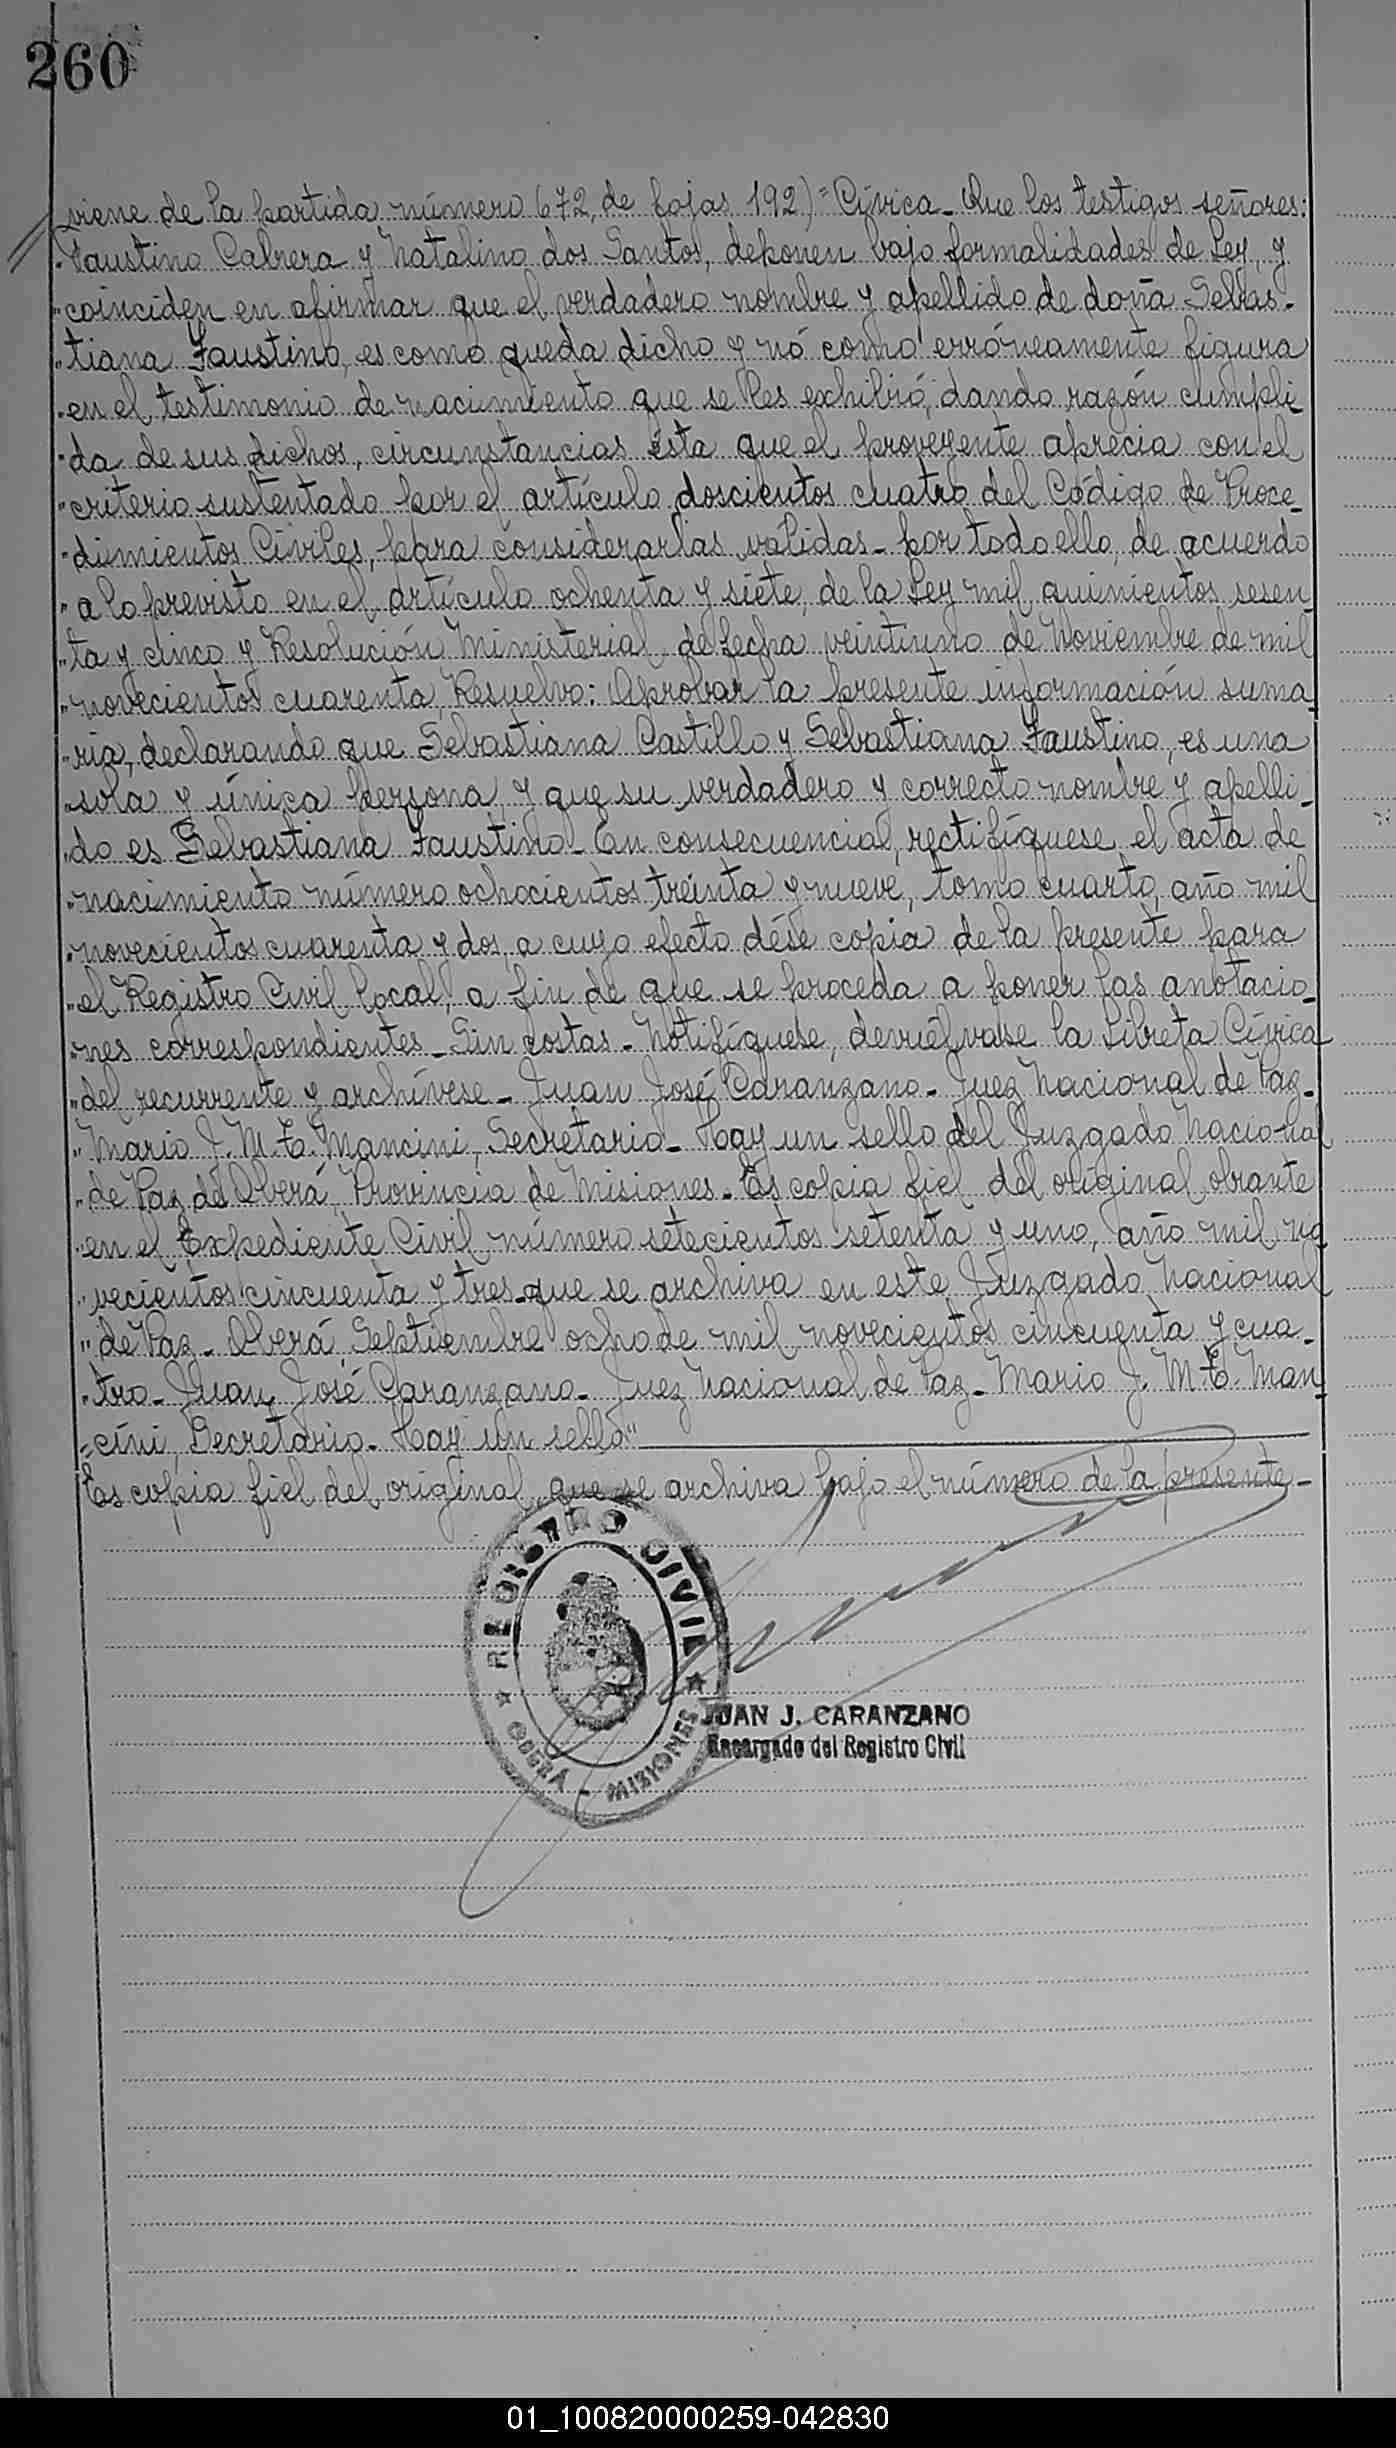 260
viene de la partida número 672, de fojas 192)= Cívica_ Que los testigos señores:
Faustino Cabrera y Natalino dos Santos, deponen bajo formalidades de Ley, y
"coinciden en afirmar que el verdadero nombre y apellido de doña Sebas-
"tiana Faustino, es como queda dicho y nó como erróneamente figura
"en el testimonio de nacimiento que se les exhibió, dando razón cumpli
"da de sus dichos, circunstancias ésta que el proveyente aprecia con el
"criterio sustentado por el artículo doscientos cuatro del Código de Proce_
"dimientos Civiles, para considerarlas válidas_ por todo ello, de acuerdo
"a lo previsto en el artículo ochenta y siete, de la Ley mil quinientos sesen_
"ta y cinco y Resolución Ministerial de fecha veintiuno de Noviembre de mil
"novecientos cuarenta, Resuelvo: Aprobar la presente información suma_
"ria, declarando que Sebastiana Castillo y Sebastiana Faustino, es una
"sola y única persona y que su verdadero y correcto nombre y apelli_
"do es Sebastiana Faustino_ En consecuencia, rectifíquese el acta de
"nacimiento número ochocientos treinta y nueve, tomo cuarto, año mil
"novecientos cuarenta y dos, a cuyo efecto dése copia de la presente para
"el Registro Civil local, a fin de que se proceda a poner las anotacio_
"nes correspondientes_ Sin costas_ Notifíquese, devuélvase la Libreta Cívica
"del recurrente y archívese_ Juan José Caranzano_ Juez Nacional de Paz_
"Mario J. M. E. Mancini, Secretario_ Hay un sello del Juzgado Nacional
"de Paz de Oberá, Provincia de Misiones_ Es copia fiel del original obrante
"en el Expediente Civil número setecientos setenta y uno, año mil no
"vecientos cincuenta y tres_que se archiva en este Juzgado Nacional
"de Paz_ Oberá, Septiembre ocho de mil novecientos cincuenta y cua_
"tro_ Juan José Caranzano_ Juez Nacional de Paz_ Mario J. M. E. Man_
"cini, Secretario_ Hay un sello"
Es copia fiel del original, que se archiva bajo el número de la presente_
REGISTRO CIVIL
OBERÁ - MISIONES
JUAN J. CARANZANO
Encargado del Registro Civil
01_100820000259-042830